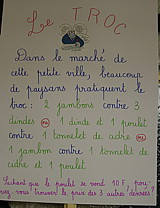 Le TROC
Dans le marché de
cette petite ville, beaucoup
de paysans pratiquent le
troc : 2 jambons contre 3
dindes 1 dinde et 1 poulet
contre 1 tonnelet de cidre
1 jambon contre 1 tonnelet de
cidre et 1 poulet
Sachant que le poulet se vend 10 F, pou-
vez-vous trouver le prix des 3 autres denrées